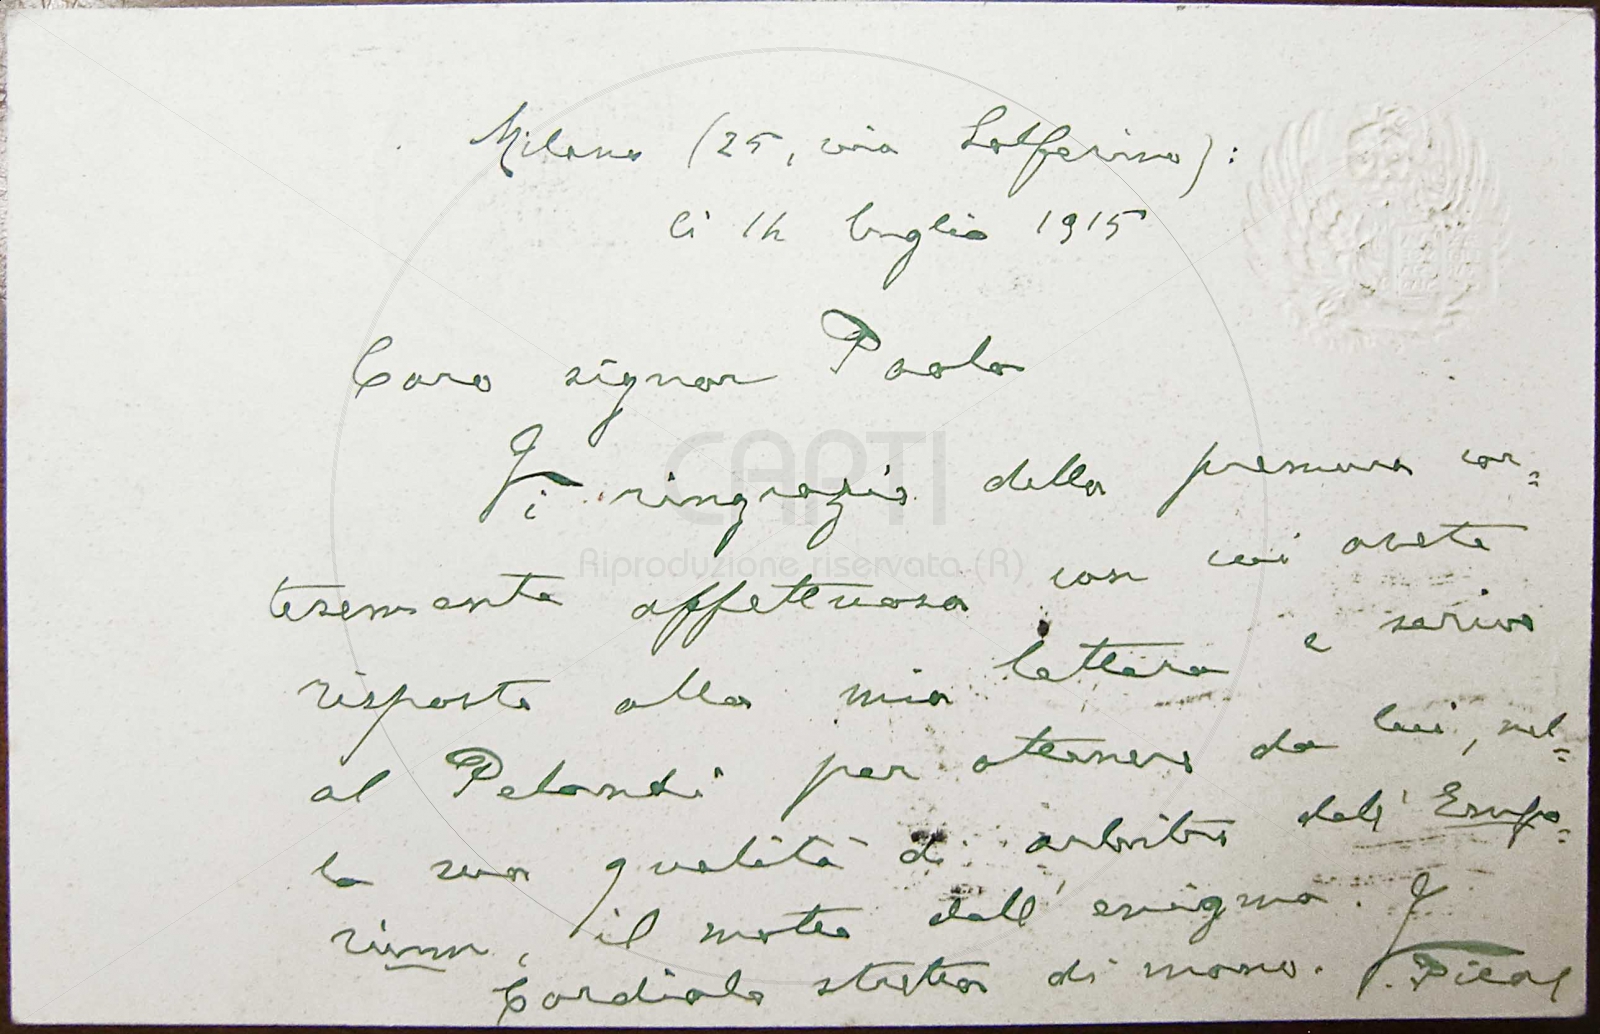 Milano (25, via Solferino):
li 14 luglio 1915
Caro signor Paolo
Vi ringrazio della premura cor=
tesemente affettuosa con cui avete
risposto alla mia lettera e scrivo
al Pelandi per ottenere da lui, nel=
la sua qualità di arbitro dell'Empo=
rium, il motto dell'enigma.
Cordiale stretta di mano.
CAPTI
Riproduzione riservata (R)